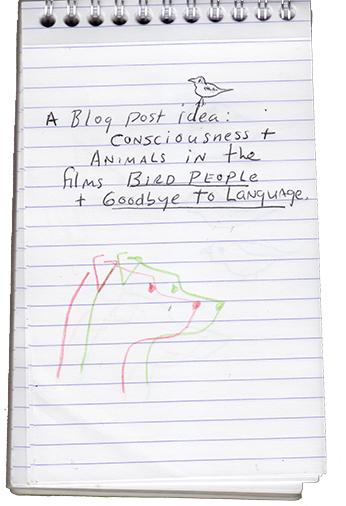 A Blog post idea:
CONSCIOUSNESS +
ANIMALS in the
films BIRD PEOPLE
+ GOODBYE TO LANGUAGE.